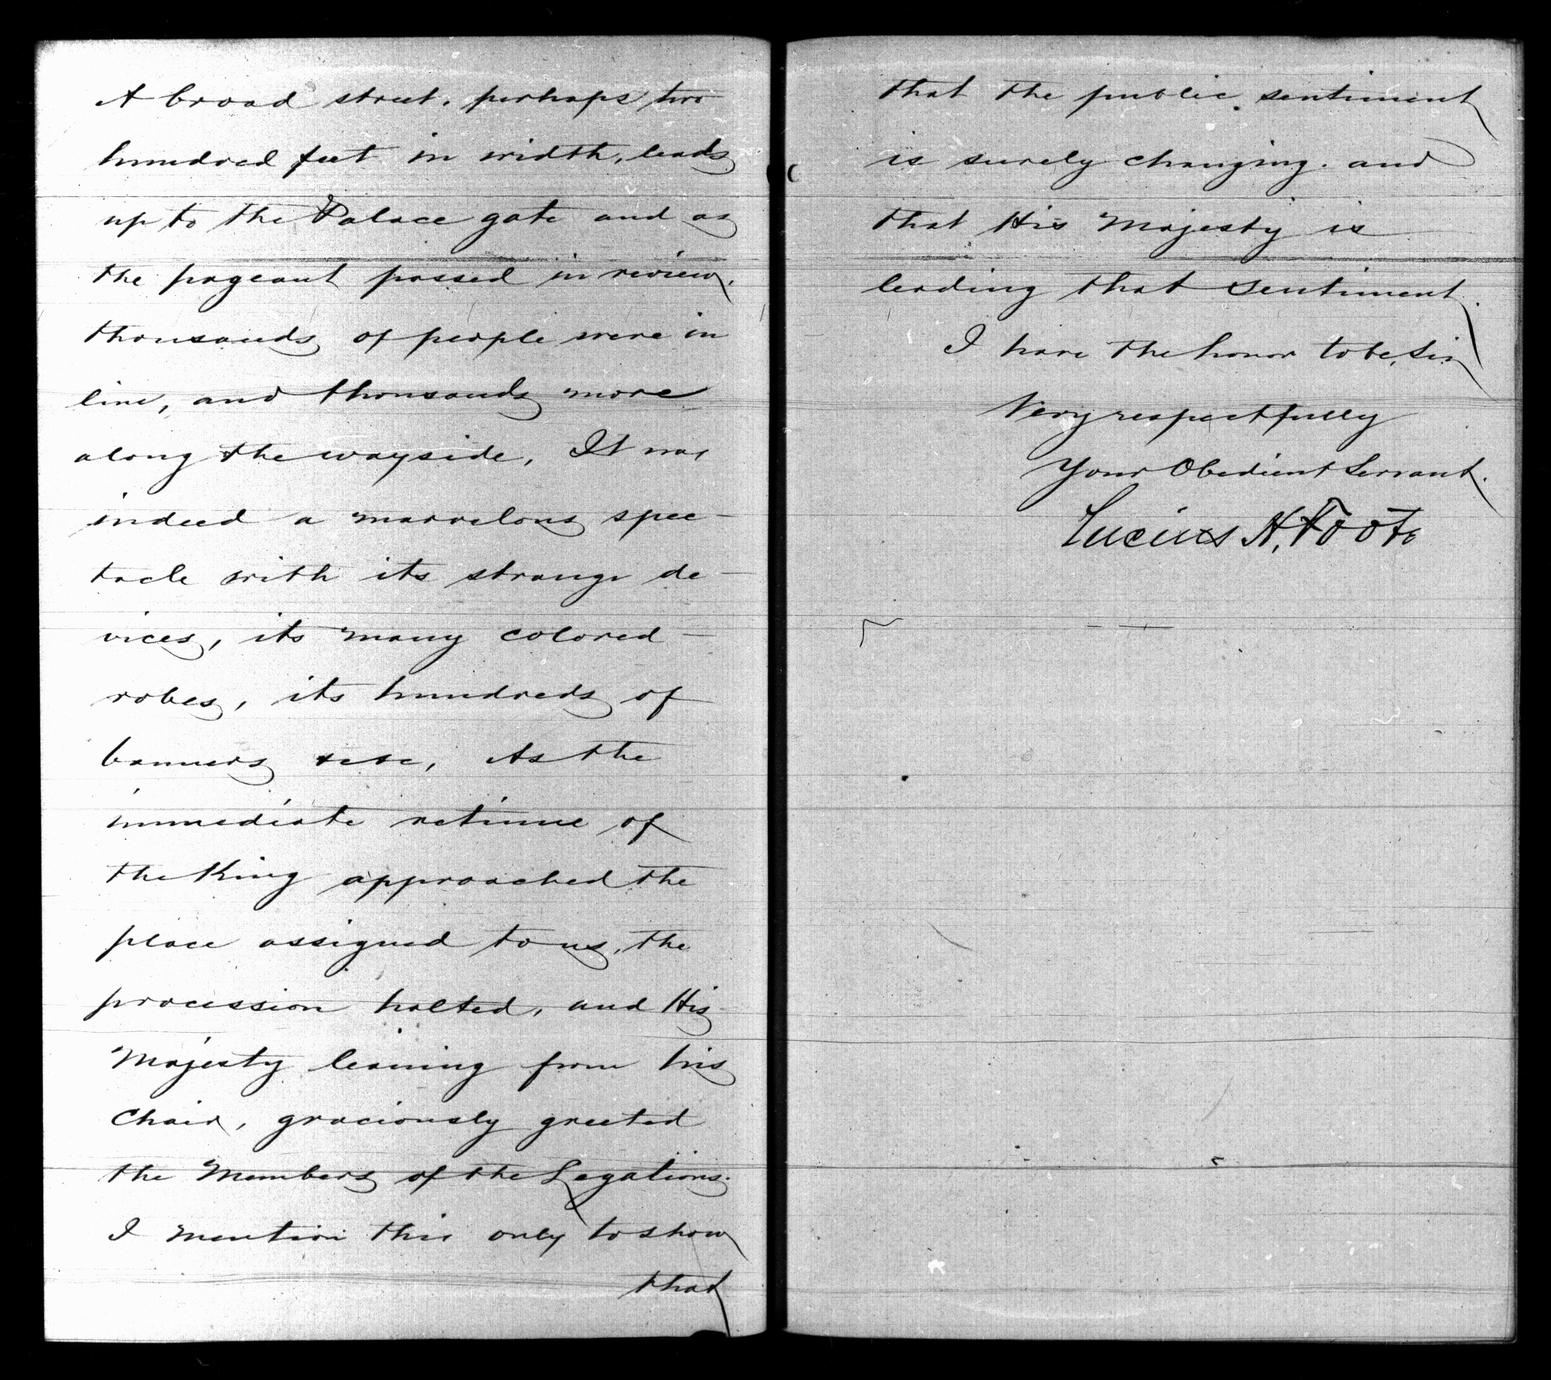 A broad street, perhaps two
hundred feet in width, leads
up to the Palace gate and as
the pageant passed in review,
thousands of people were in
line, and thousands more
along the wayside. It was
indeed a marvelous spec-
tacle with its strange de-
vices, its many colored
robes, its hundreds of
banners etc, As the
immediate retinue of
the King approached the
place assigned to us, the
procession halted, and His
Majesty leaning from his
Chair, graciously greeted
the Members of the Legations.
I mention this only to show
that
that the public sentiment
is surely changing. and
that His Majesty is
leading that Sentiment.
I have the honor to be, Sir
Very respectfully
Your Obedient Servant.
Lucius H. Foote